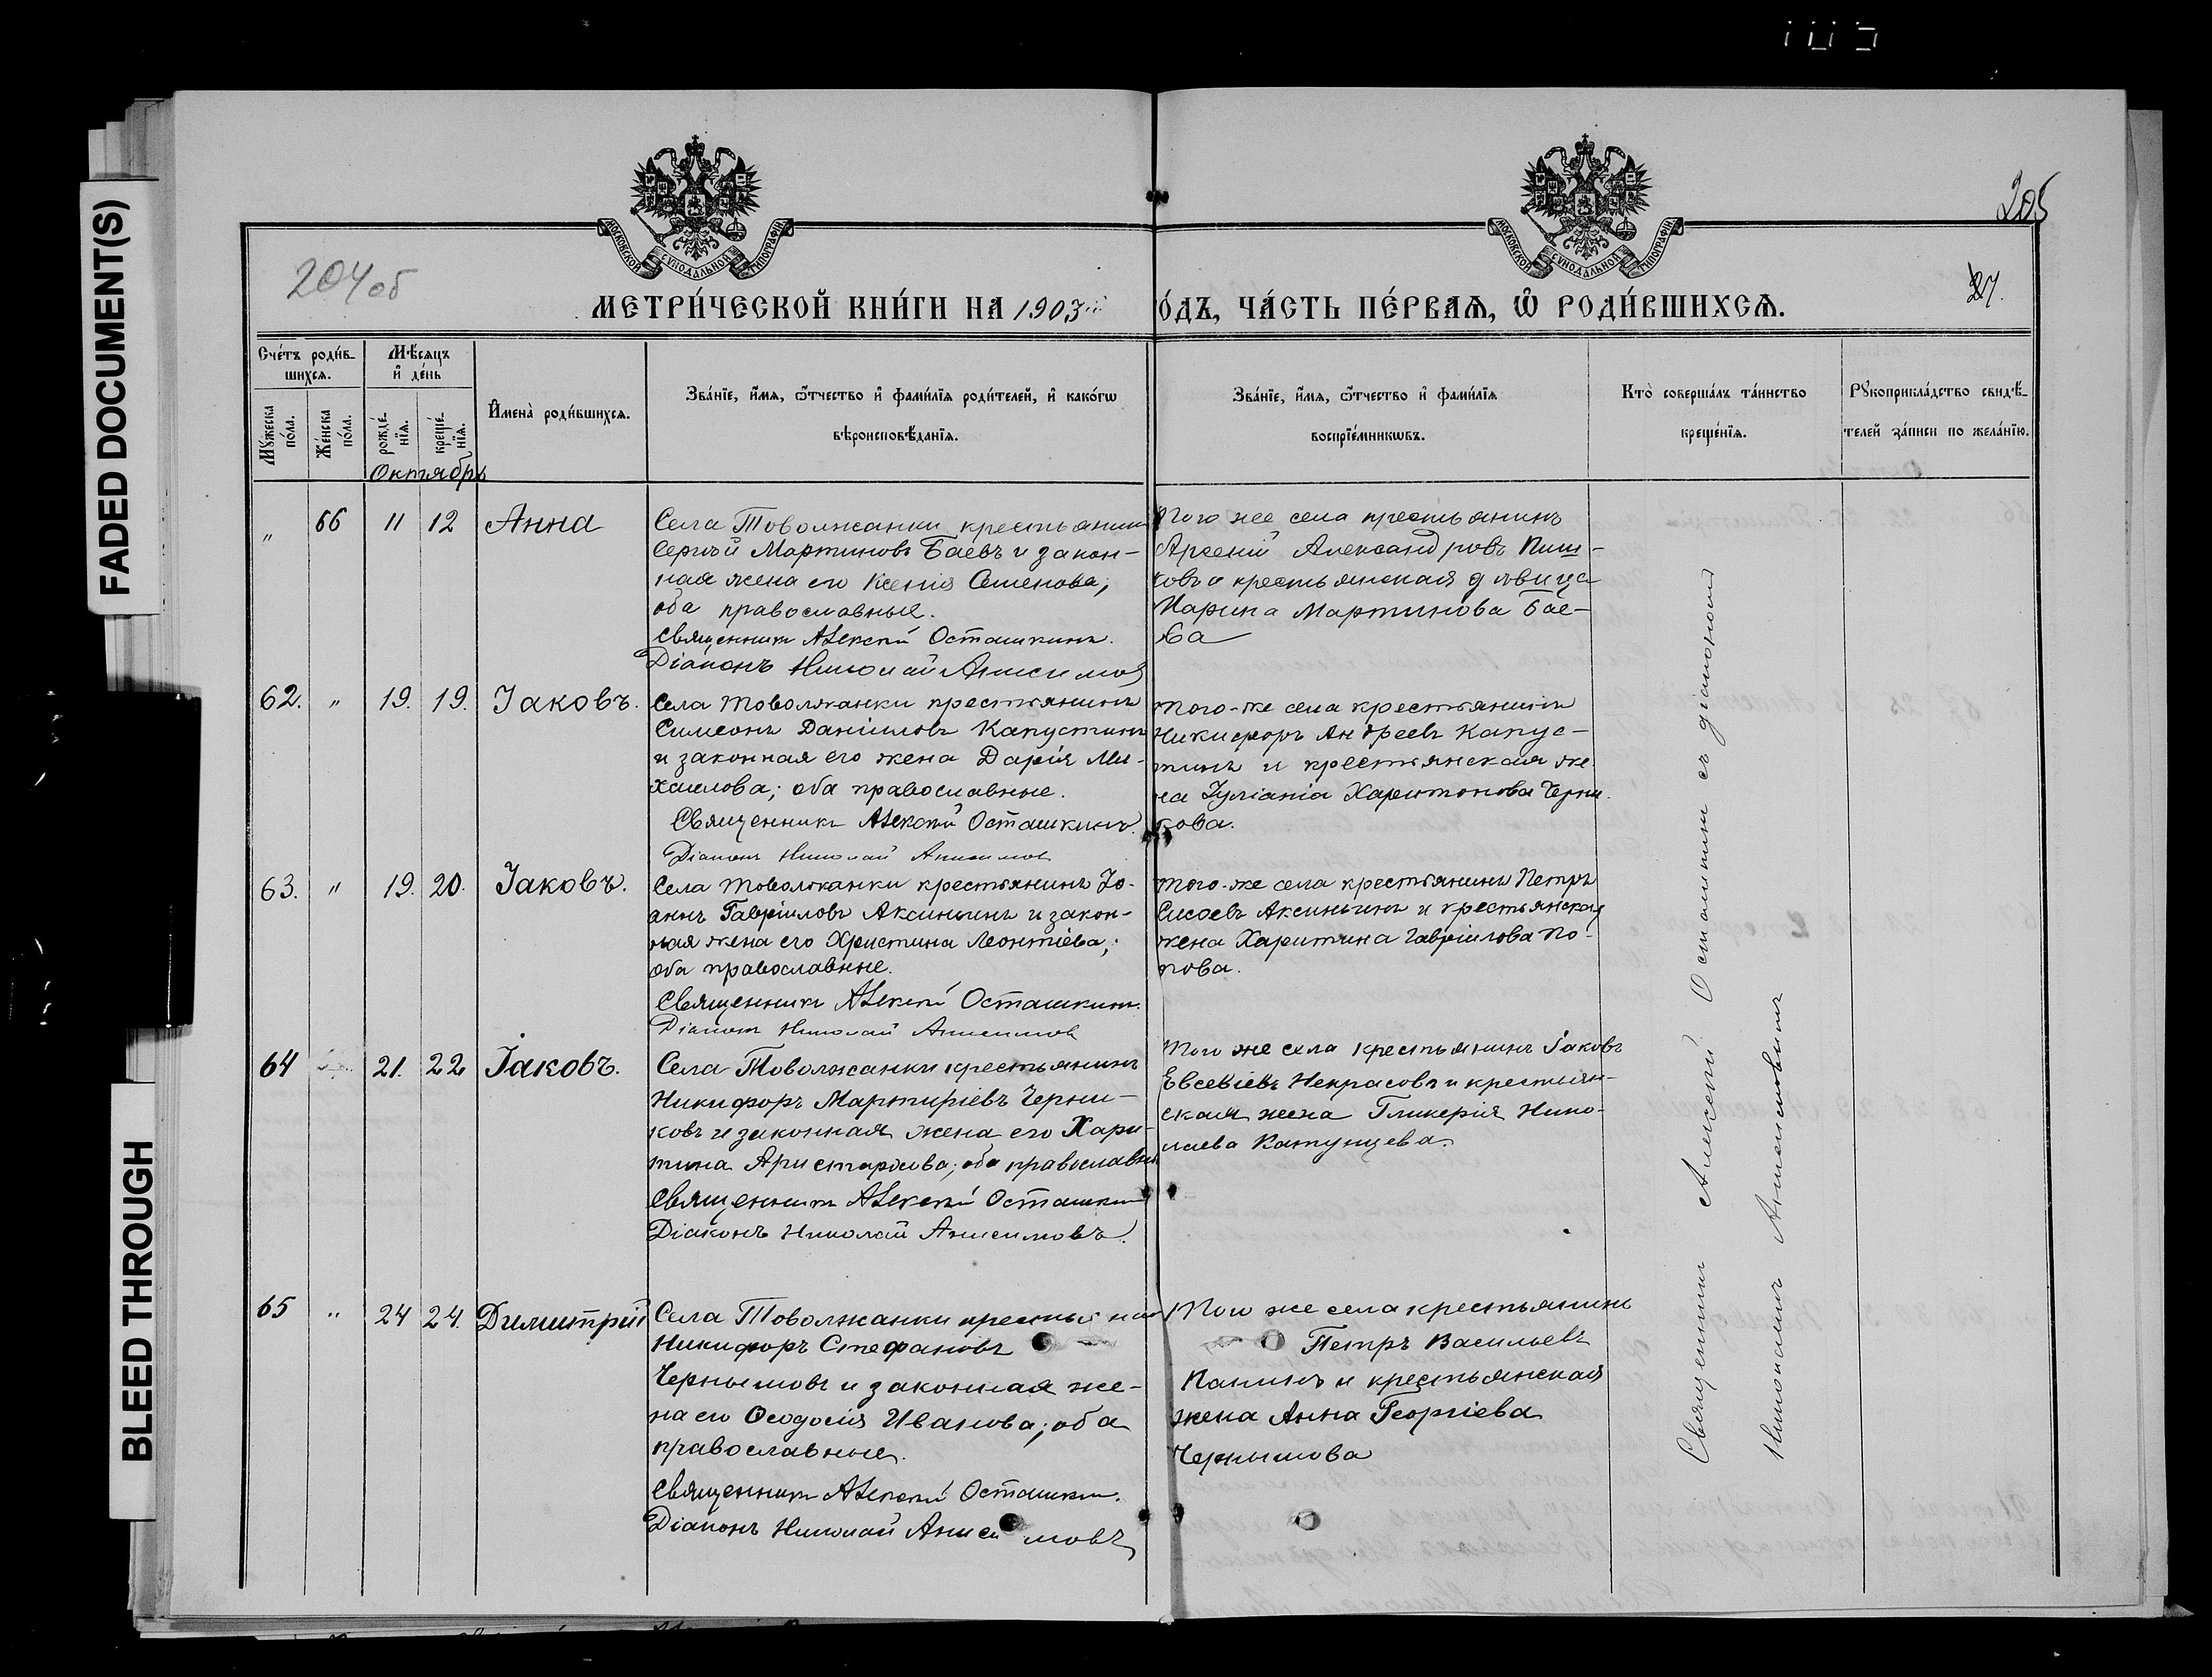 FADED DOCUMENT(S)
BLEED THROUGH
204 об
205
27.
МОСКОВСКОЙ СУНОДАЛЬНОЙ ТИПОГРАФІИ
МОСКОВСКОЙ СУНОДАЛЬНОЙ ТИПОГРАФІИ
МЕТРИ́ЧЕСКОЙ КНИ́ГИ НА 1903 
О́ДЪ, ЧА́СТЬ ПЕ́РВАѦ, Ѿ РОДИ́ВШИХСѦ.
Сче́тъ роди́в-
шихсѧ.
Мꙋ́жеска
по́ла.
Же́нска
по́ла.
Мѣ́сѧцъ
и҆ де́нь
рожде́-
нїѧ.
креще́-
нїѧ.
Октябрь
И҆мена̀ роди́вшихсѧ.
Зва́нїе, и҆́мѧ, ѻ҆́тчество и҆ фами́лїѧ роди́телей, и҆ како́гѡ
вѣроисповѣ́данїѧ.
Зва́нїе, и҆́мѧ, ѻ҆́тчество и҆ фами́лїѧ
воспрїе́мникѡвъ.
Кто̀ соверша́лъ та́инство
креще́нїѧ.
Рꙋкоприкла́дство свидѣ́-
телей за́писи по жела́нїю.
" 66 11 12 Анна
Села Товолжанки крестьянинъ
Сергѣй Мартиновъ Баевъ и закон-
ная жена его Ксенія Семенова;
оба православные.
Священникъ Алексѣй Осташкинъ.
Діаконъ Николай Анисимов
Того же села крестьянинъ
Арсеній Александровъ Пиш-
ковъ и крестьянская дѣвица
Марина Мартинова Бае-
ва
62. " 19. 19. Іаковъ.
Села Товолжанки крестьянинъ
Симеонъ Даніиловъ Капустинъ
и законная его жена Дарія Ми-
хаилова; оба православные.
Священникъ Алексѣй Осташкинъ.
Діаконъ Николай Анисимовъ
Того-же села крестьянинъ
Никифоръ Андреевъ Капус-
тинъ и крестьянская же-
на Іуліанія Харитонова Черни-
кова.
63. " 19. 20. Іаковъ.
Села Товолжанки крестьянинъ Іо-
аннъ Гавріиловъ Аксиньинъ и закон-
ная жена его Христина Леонтіева;
оба православные.
Священникъ Алексѣй Осташкин.
Діаконъ Николай Анисимовъ
Того-же села крестьянинъ Петръ
Сисоевъ Аксиньинъ и крестьянская
жена Харитина Гавріилова По-
пова.
64 21. 22 Іаковъ.
Села Товолжанки крестьянинъ
Никифоръ Мартиріевъ Черни-
ковъ и законная жена его Хари-
тина Аристархова; оба православны
Священникъ Алексѣй Осташкин
Діаконъ Николай Анисимовъ.
Того же села крестьянинъ Іаковъ
Евсевіевъ Некрасовъ и крестьян-
ская жена Гликерія Нико-
лаева Катунцева.
65 " 24 24. Димитрій
Села Товолжанки крестьянин
Никифоръ Стефановъ
Чернышовъ и законная же-
на его Ѳеодосія Иванова; оба
православные.
Священникъ Алексѣй Осташкин.
Діаконъ Николай Анисимовъ
Того же села крестьянинъ
Петръ Васильевъ
Панинъ и крестьянская
жена Анна Георгіева
Чернышова
Священникъ Алексѣй Осташкинъ съ діакономъ
Николаемъ Анисимовымъ